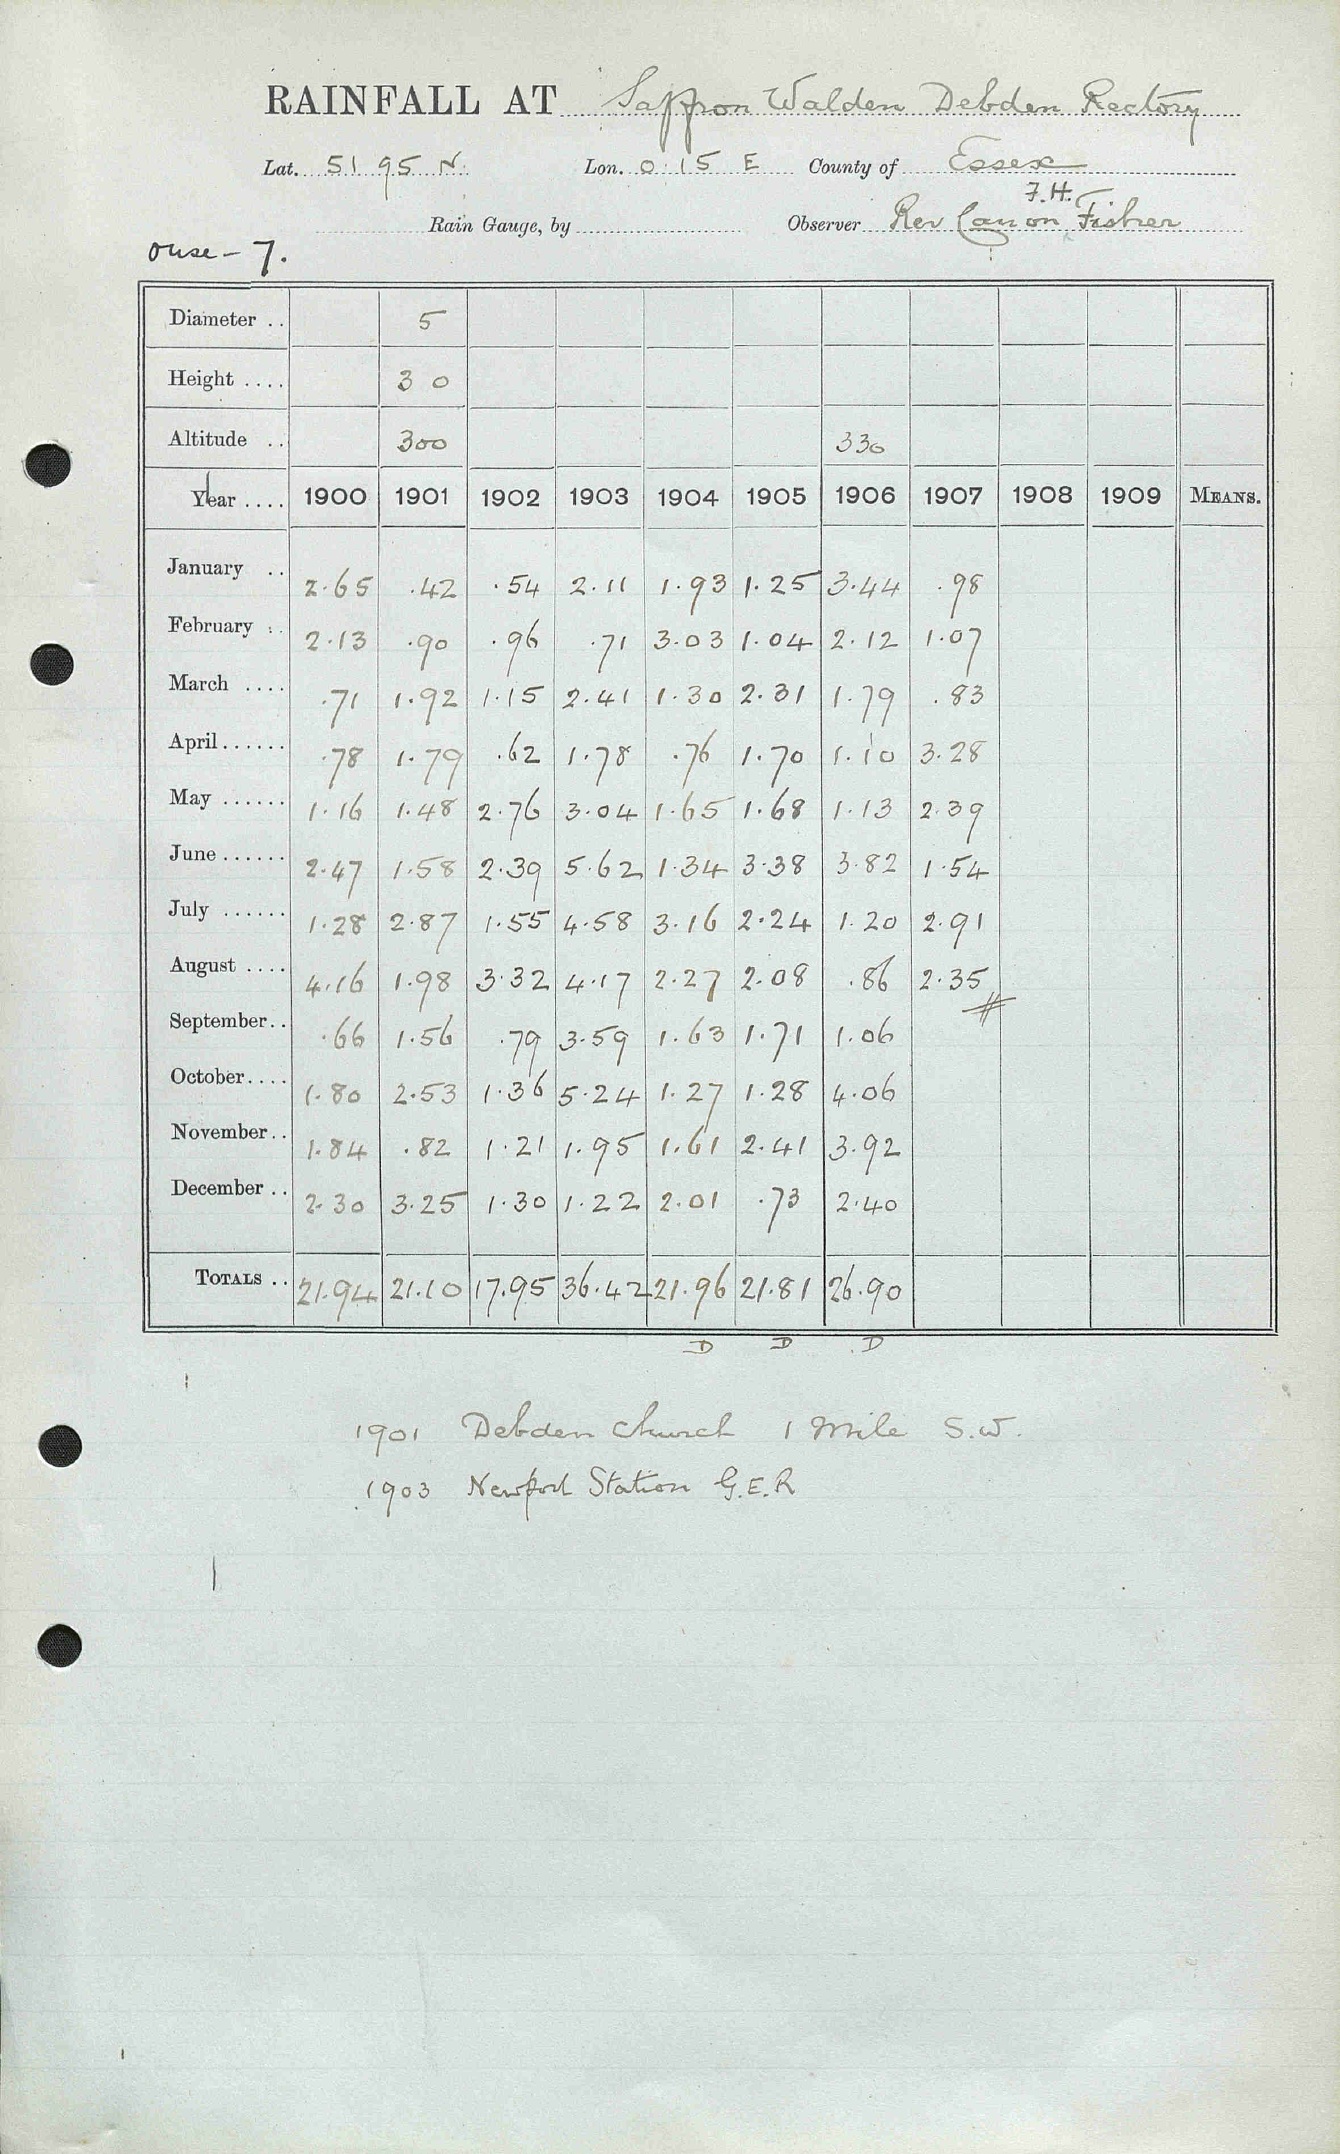 RAINFALL AT Saffron Walden Debden Rectory
Lat. 51 95 N. Lon. 0 15 E County of Essex
F.H.
Rain Gauge, by Observer Rev Canon Fisher
Ouse - 7.
Diameter .. 5
Height .... 3 0
Altitude .. 300 330
Year .... 1900 1901 1902 1903 1904 1905 1906 1907 1908 1909 MEANS.
January .. 2.65 .42 .54 2.11 1.93 1.25 3.44 .98
February .. 2.13 .90 .96 .71 3.03 1.04 2.12 1.07
March .... .71 1.92 1.15 2.41 1.30 2.31 1.79 .83
April...... .78 1.79 .62 1.78 .76 1.70 1.10 3.28
May ...... 1.16 1.48 2.76 3.04 1.65 1.68 1.13 2.39
June...... 2.47 1.58 2.39 5.62 1.34 3.38 3.82 1.54
July ...... 1.28 2.87 1.55 4.58 3.16 2.24 1.20 2.91
August .... 4.16 1.98 3.32 4.17 2.27 2.08 .86 2.35
September.. .66 1.56 .79 3.59 1.63 1.71 1.06
October.... 1.80 2.53 1.36 5.24 1.27 1.28 4.06
November.. 1.84 .82 1.21 1.95 1.61 2.41 3.92
December .. 2.30 3.25 1.30 1.22 2.01 .73 2.40
TOTALS .. 21.94 21.10 17.95 36.42 21.96 21.81 26.90
D D D
1901 Debden Church 1 Mile S.W.
1903 Newport Station G.E.R